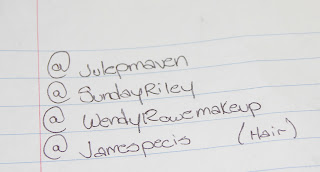 @ Julepmaven
@ SundayRiley
@ WendyRowemakeup
@ Jamespecis (Hair)